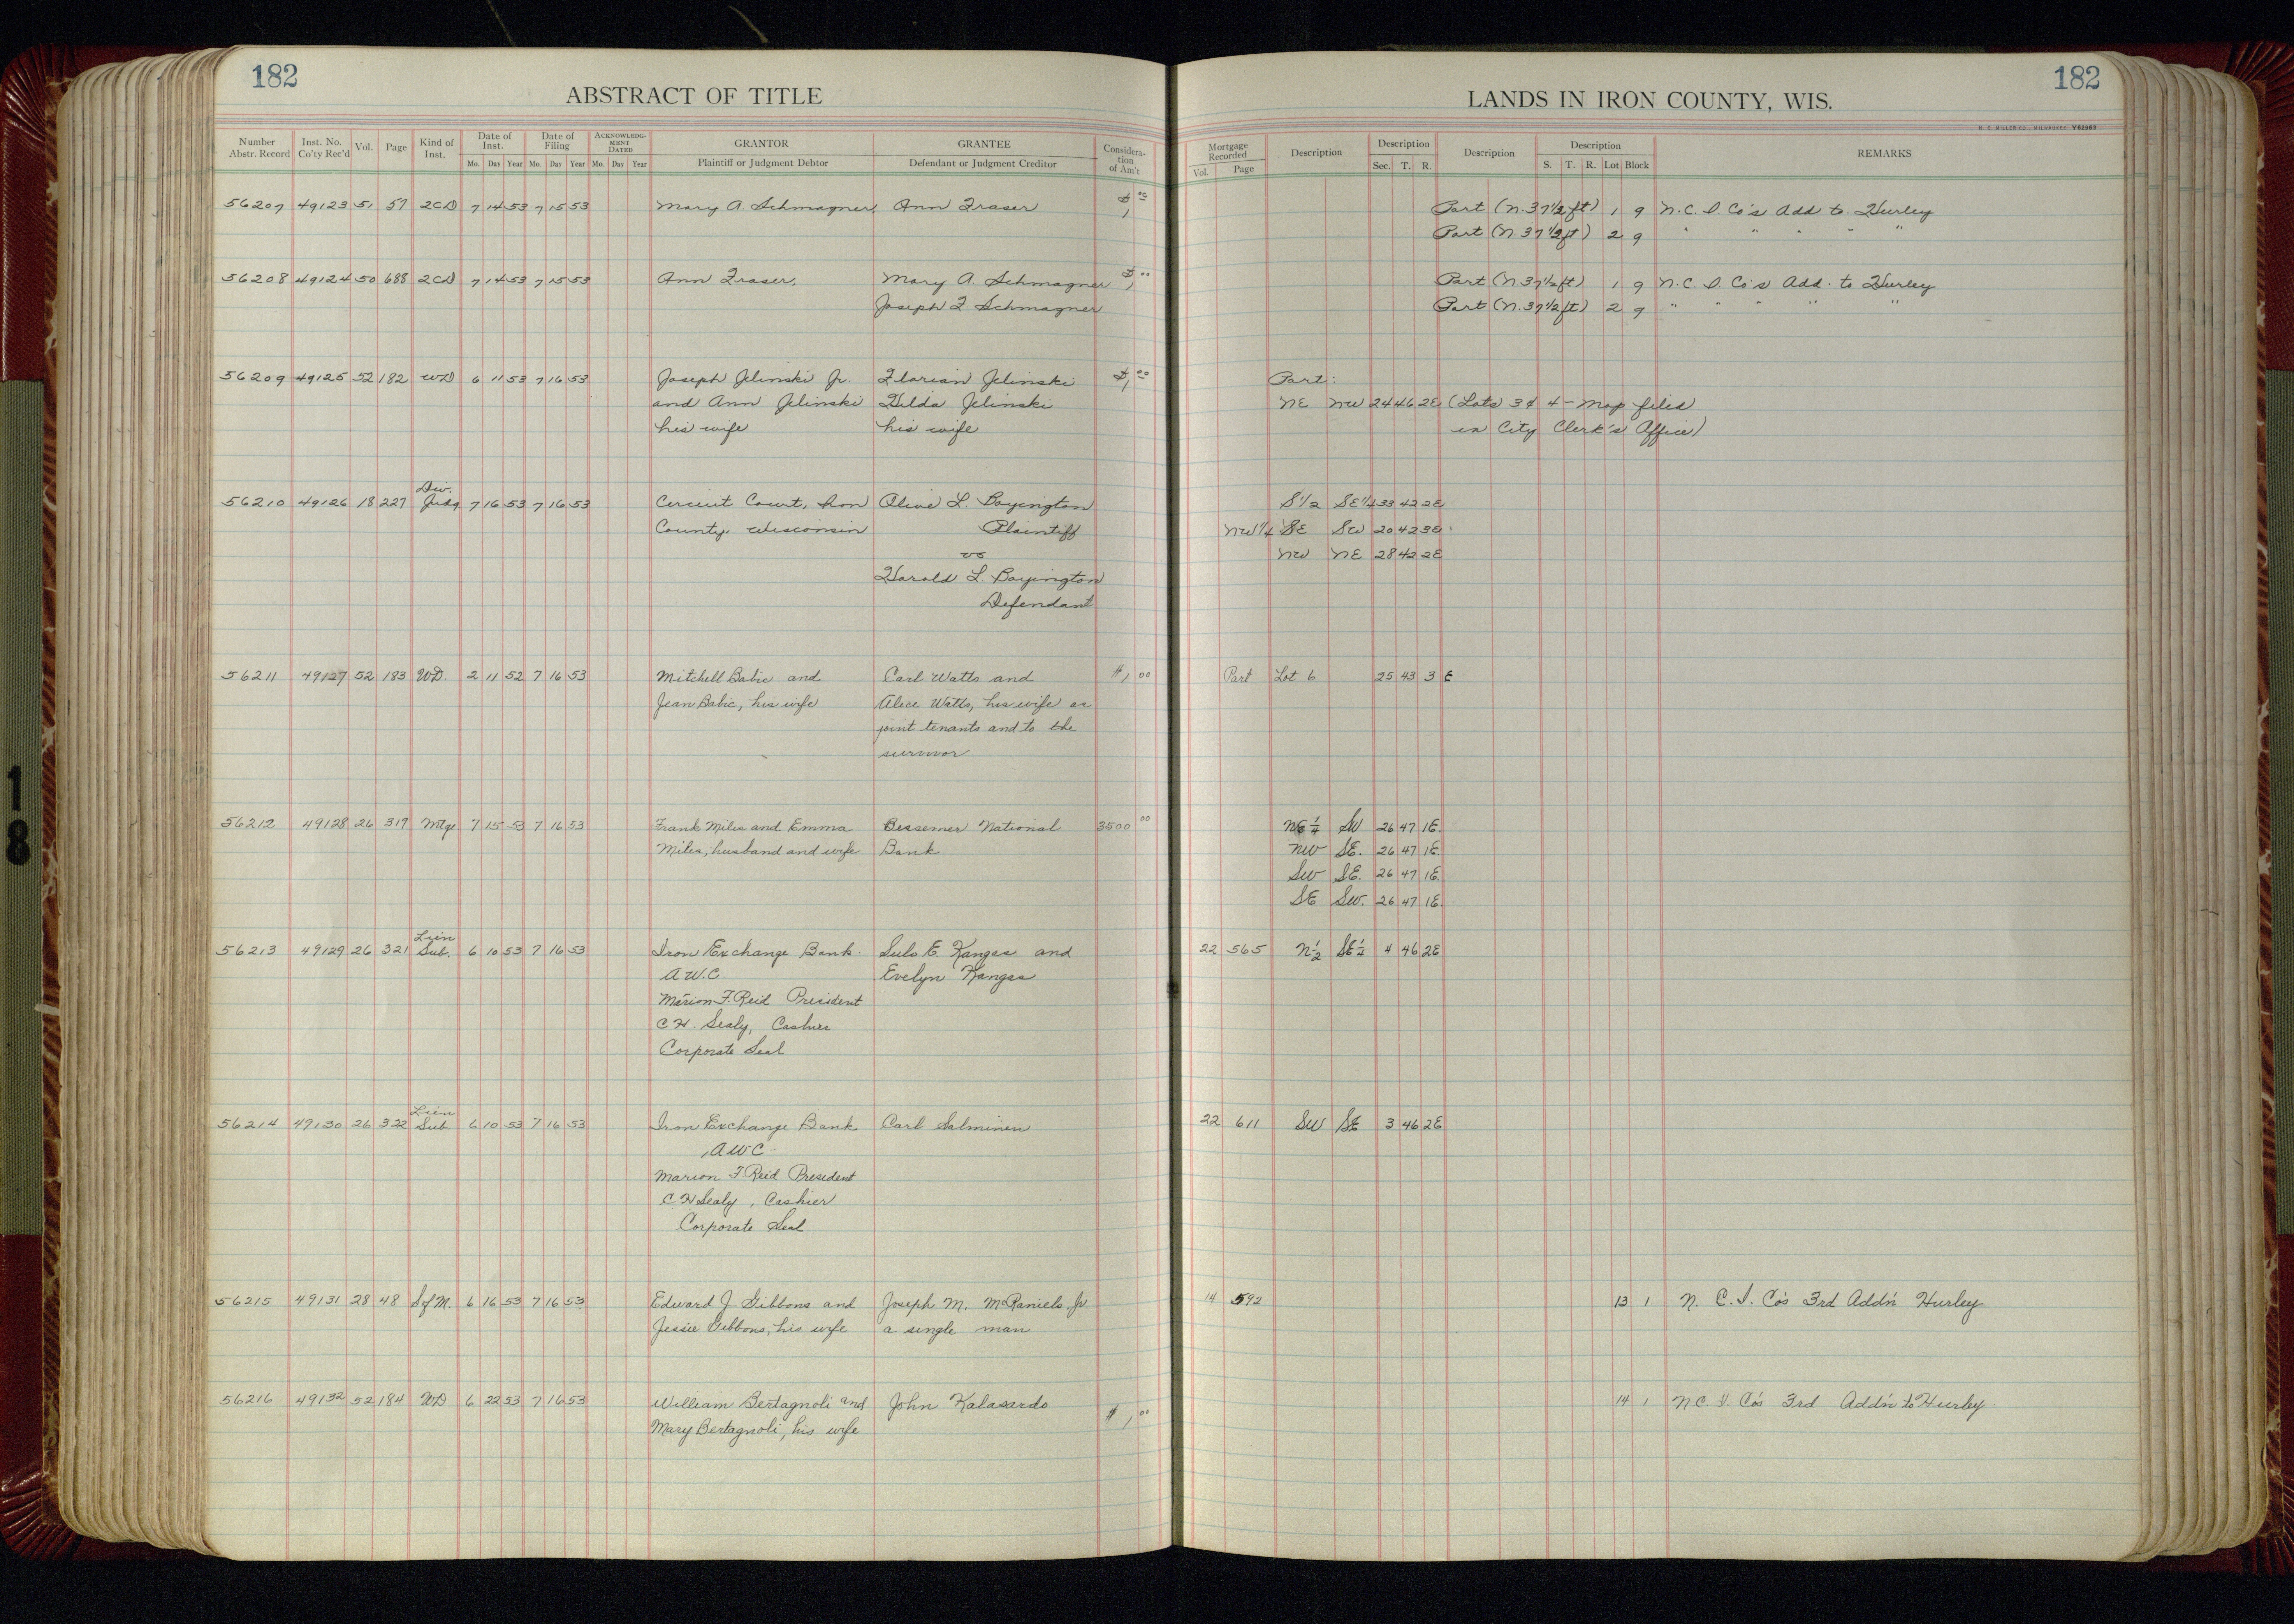 182
ABSTRACT OF TITLE
Number Abstr. Record | Inst. No. Co'ty Rec'd | Vol. | Page | Kind of Inst. | Date of Inst. Mo. Day Year | Date of Filing Mo. Day Year | ACKNOWLEDGMENT DATED Mo. Day Year | GRANTOR Plaintiff or Judgment Debtor | GRANTEE Defendant or Judgment Creditor | Consideration of Am't
182
LANDS IN IRON COUNTY, WIS.
Mortgage Recorded Vol. Page | Description | Description Sec. T. R. | Description | Description S. T. R. Lot Block | REMARKS
56207 49123 51 57 2CD 7 14 53 7 15 53 Mary A. Schmagner, Ann Fraser $1 00 Part (N. 37 1/2 ft) 1 9 N.C.I. Co's Add to Hurley
Part (N. 37 1/2 ft) 2 9 " " " " "
56208 49124 50 688 2CD 7 14 53 7 15 53 Ann Fraser, Mary A. Schmagner $1 00 Part (N. 37 1/2 ft) 1 9 N.C.I. Co's Add. to Hurley
Joseph F. Schmagner Part (N. 37 1/2 ft) 2 9 " " " " "
56209 49125 52 182 WD 6 11 53 7 16 53 Joseph Jelinski Jr. Florian Jelinski $1 00 Part:
and Ann Jelinski Hilda Jelinski NE NW 24 46 2E (Lots 3 & 4 - Map filed
his wife his wife in City Clerk's Office)
Div.
56210 49126 18 227 Judg 7 16 53 7 16 53 Circuit Court, Iron Olive L. Boyington S 1/2 SE 1/4 33 42 2E
County, Wisconsin Plaintiff NW 1/4 SE SW 20 42 3E
vs NW NE 28 42 2E
Harold L. Boyington
Defendant
56211 49127 52 183 WD. 2 11 52 7 16 53 Mitchell Babic and Carl Watts and $1 00 Part Lot 6 25 43 3 E
Jean Babic, his wife Alice Watts, his wife as
joint tenants and to the
survivor
56212 49128 26 319 Mtge 7 15 53 7 16 53 Frank Miles and Emma Bessemer National 3500 00 NE 1/4 SW 26 47 1E.
Miles, husband and wife Bank NW SE. 26 47 1E.
SW SE. 26 47 1E.
SE SW. 26 47 1E.
Lien
56213 49129 26 321 Sub. 6 10 53 7 16 53 Iron Exchange Bank. Sulo E. Kangas and 22 565 N 1/2 SE 1/4 4 46 2E
A.W.C. Evelyn Kangas
Marion F. Reid President
C.H. Sealy, Cashier
Corporate Seal
Lien
56214 49130 26 322 Sub. 6 10 53 7 16 53 Iron Exchange Bank Carl Salminen 22 611 SW SE 3 46 2E
AWC
Marion F. Reid President
C H Sealy, Cashier
Corporate Seal
56215 49131 28 48 S of M. 6 16 53 7 16 53 Edward J. Gibbons and Joseph M. McRaniels Jr. 14 592 13 1 N. C. I. Co's 3rd Add'n Hurley
Jessie Gibbons, his wife a single man
56216 49132 52 184 WD 6 22 53 7 16 53 William Bertagnoli and John Kalasardo $1 00 14 1 N C I. Co's 3rd Add'n to Hurley
Mary Bertagnoli, his wife
18